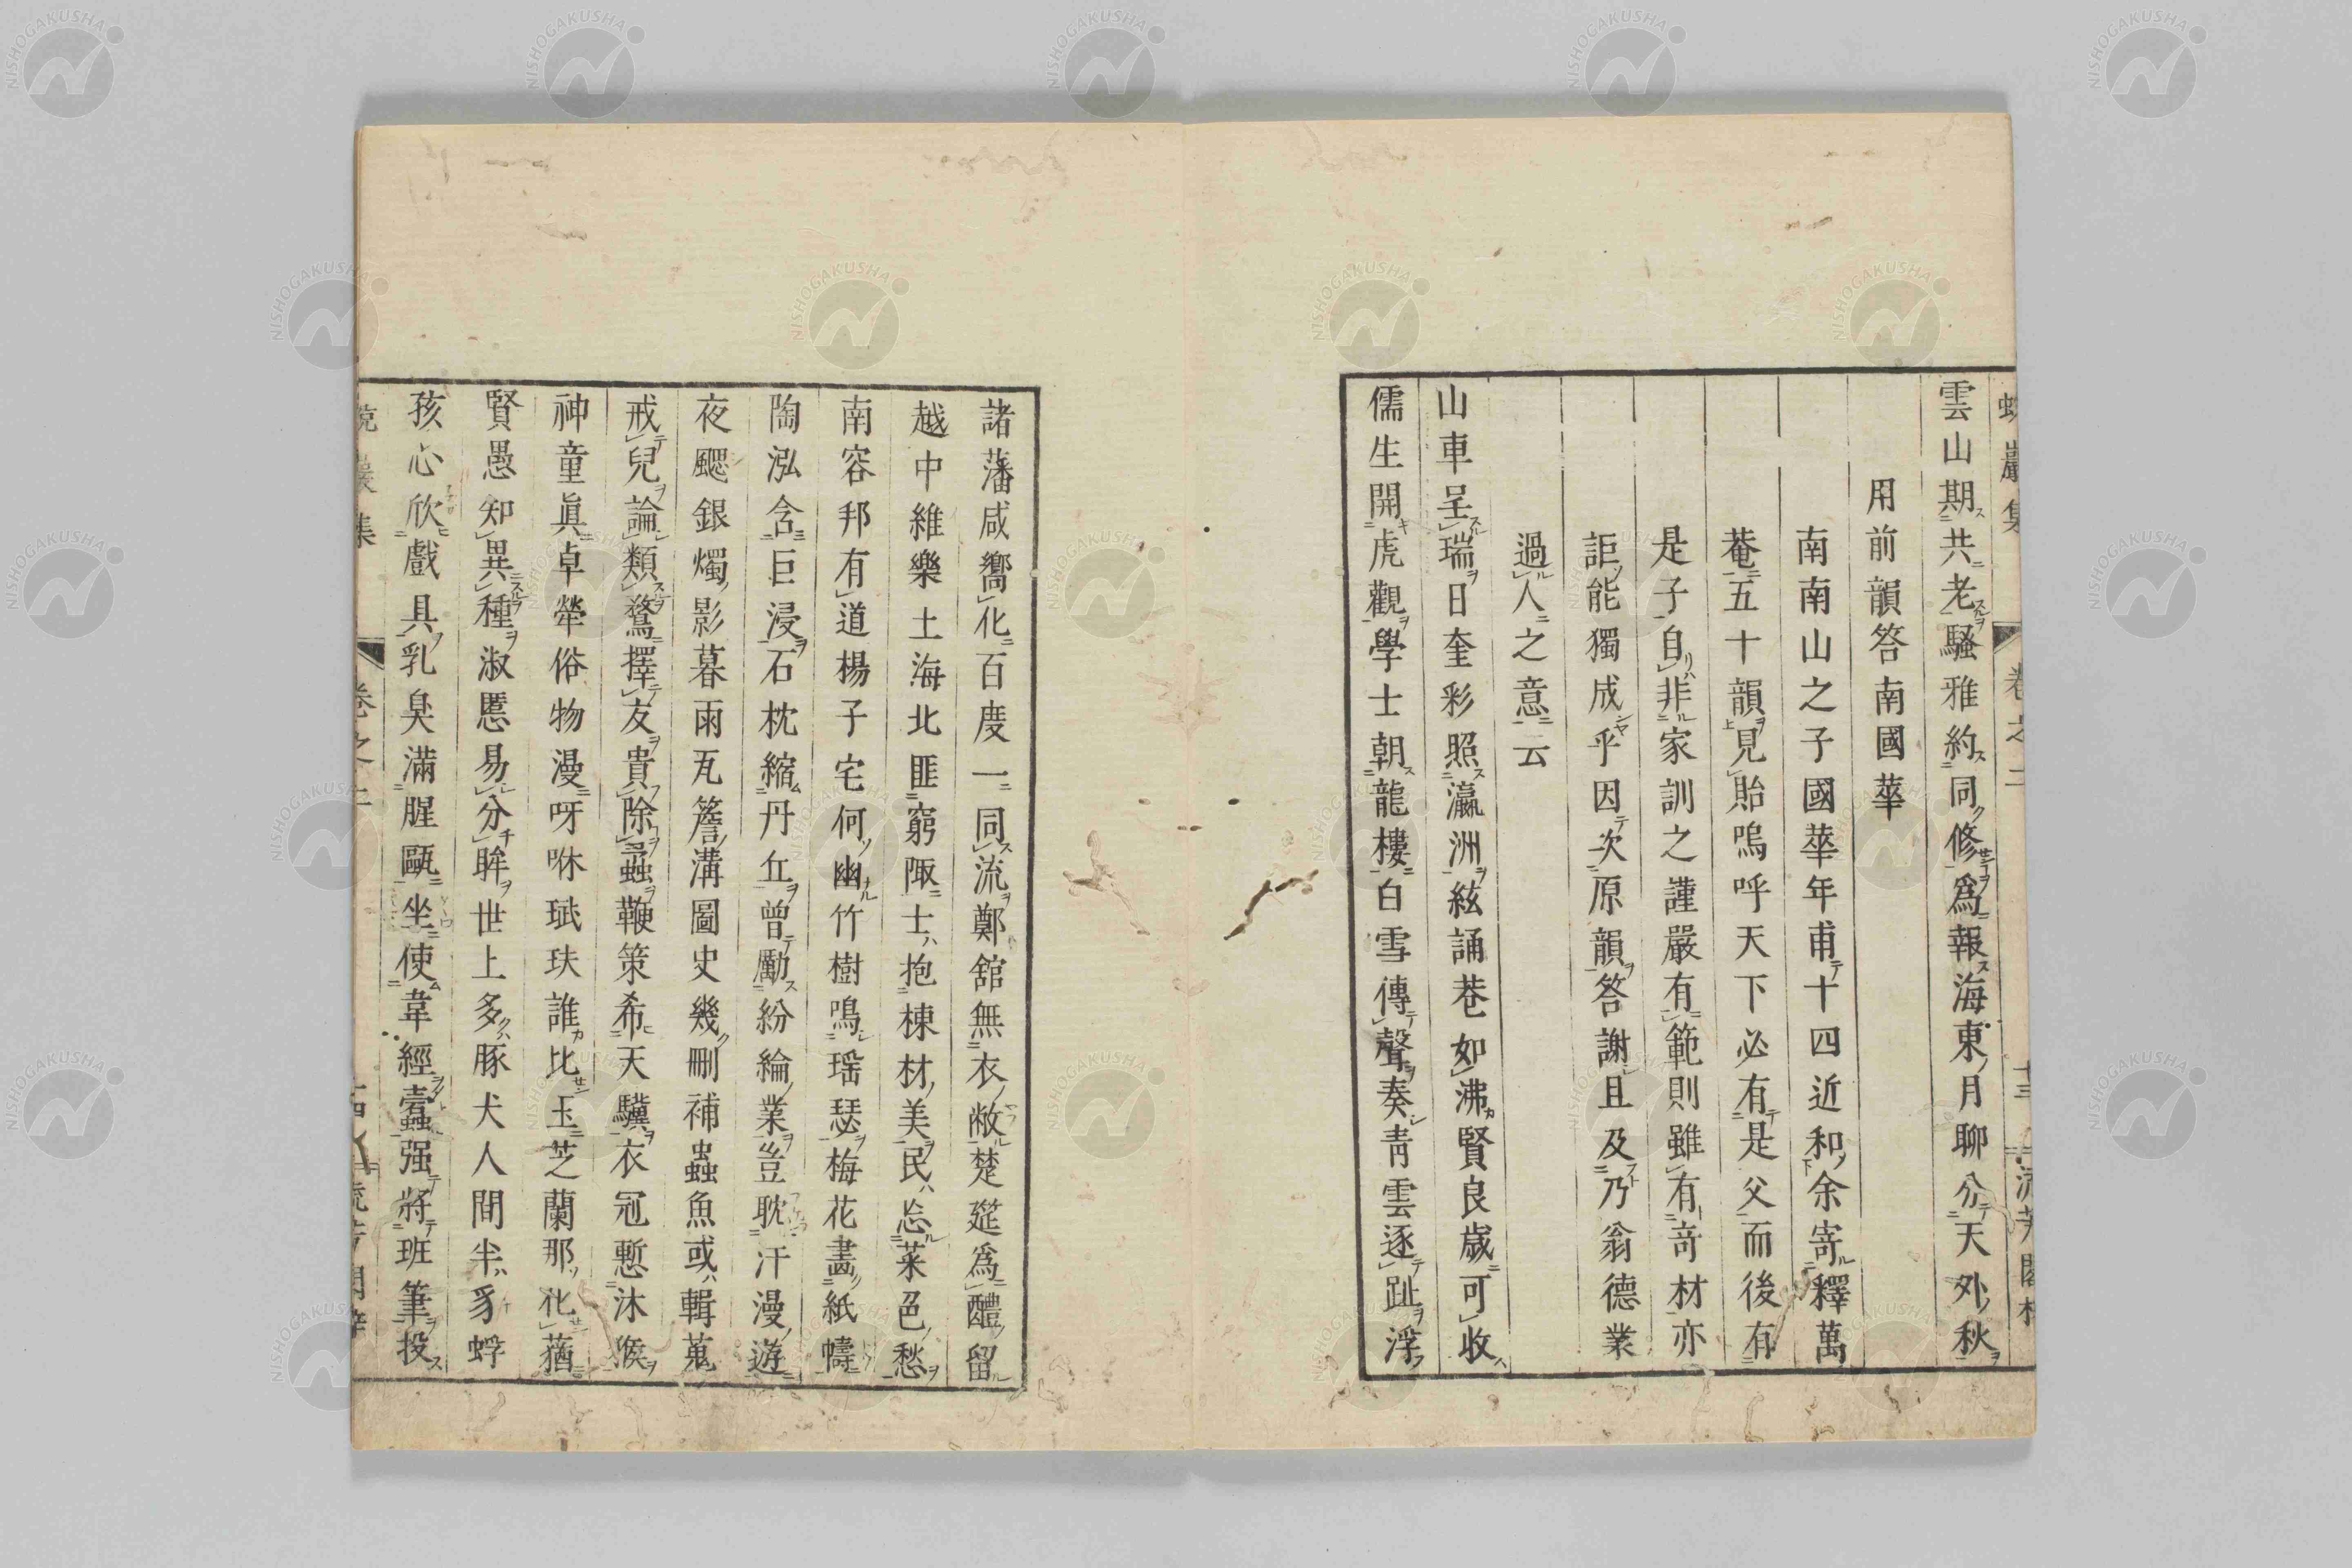 雲山期共老騷雅約同修爲報海東月聊分天外秋
用前韻答南國華
南南山之子國華年甫十四近和余寄釋萬
菴五十韻見貽嗚呼天下必有是父而後有
是子自非家訓之謹嚴有範則雖有奇材亦
詎能獨成乎因次原韻答謝且及乃翁德業
過人之意云
山車呈瑞日奎彩照瀛洲絃誦巷如沸賢良歲可收
儒生開虎觀學士朝龍樓白雪傳聲奏靑雲逐趾浮
諸藩咸嚮化百度一同流鄭舘無衣敝楚筵爲醴留
越中維樂土海北匪窮陬士抱棟材美民忘菜色愁
南容邦有道楊子宅何幽竹樹鳴瑶瑟梅花畵紙幬
陶泓含巨浸石枕縮丹丘曾勵紛綸業豈耽汗漫遊
夜颸銀燭影暮雨瓦簷溝圖史幾刪補蟲魚或輯蒐
戒兒論類鶩擇友貴除蝨鞭策希天驥衣冠慙沐猴
神童眞卓犖俗物漫呀咻珷玞誰比玉芝蘭那化蕕
賢愚知異種淑慝易分眸世上多豚犬人間半豸蜉
孩心欣戲具乳臭滿腥甌坐使韋經蠹强將班筆投
巖集
卷之二